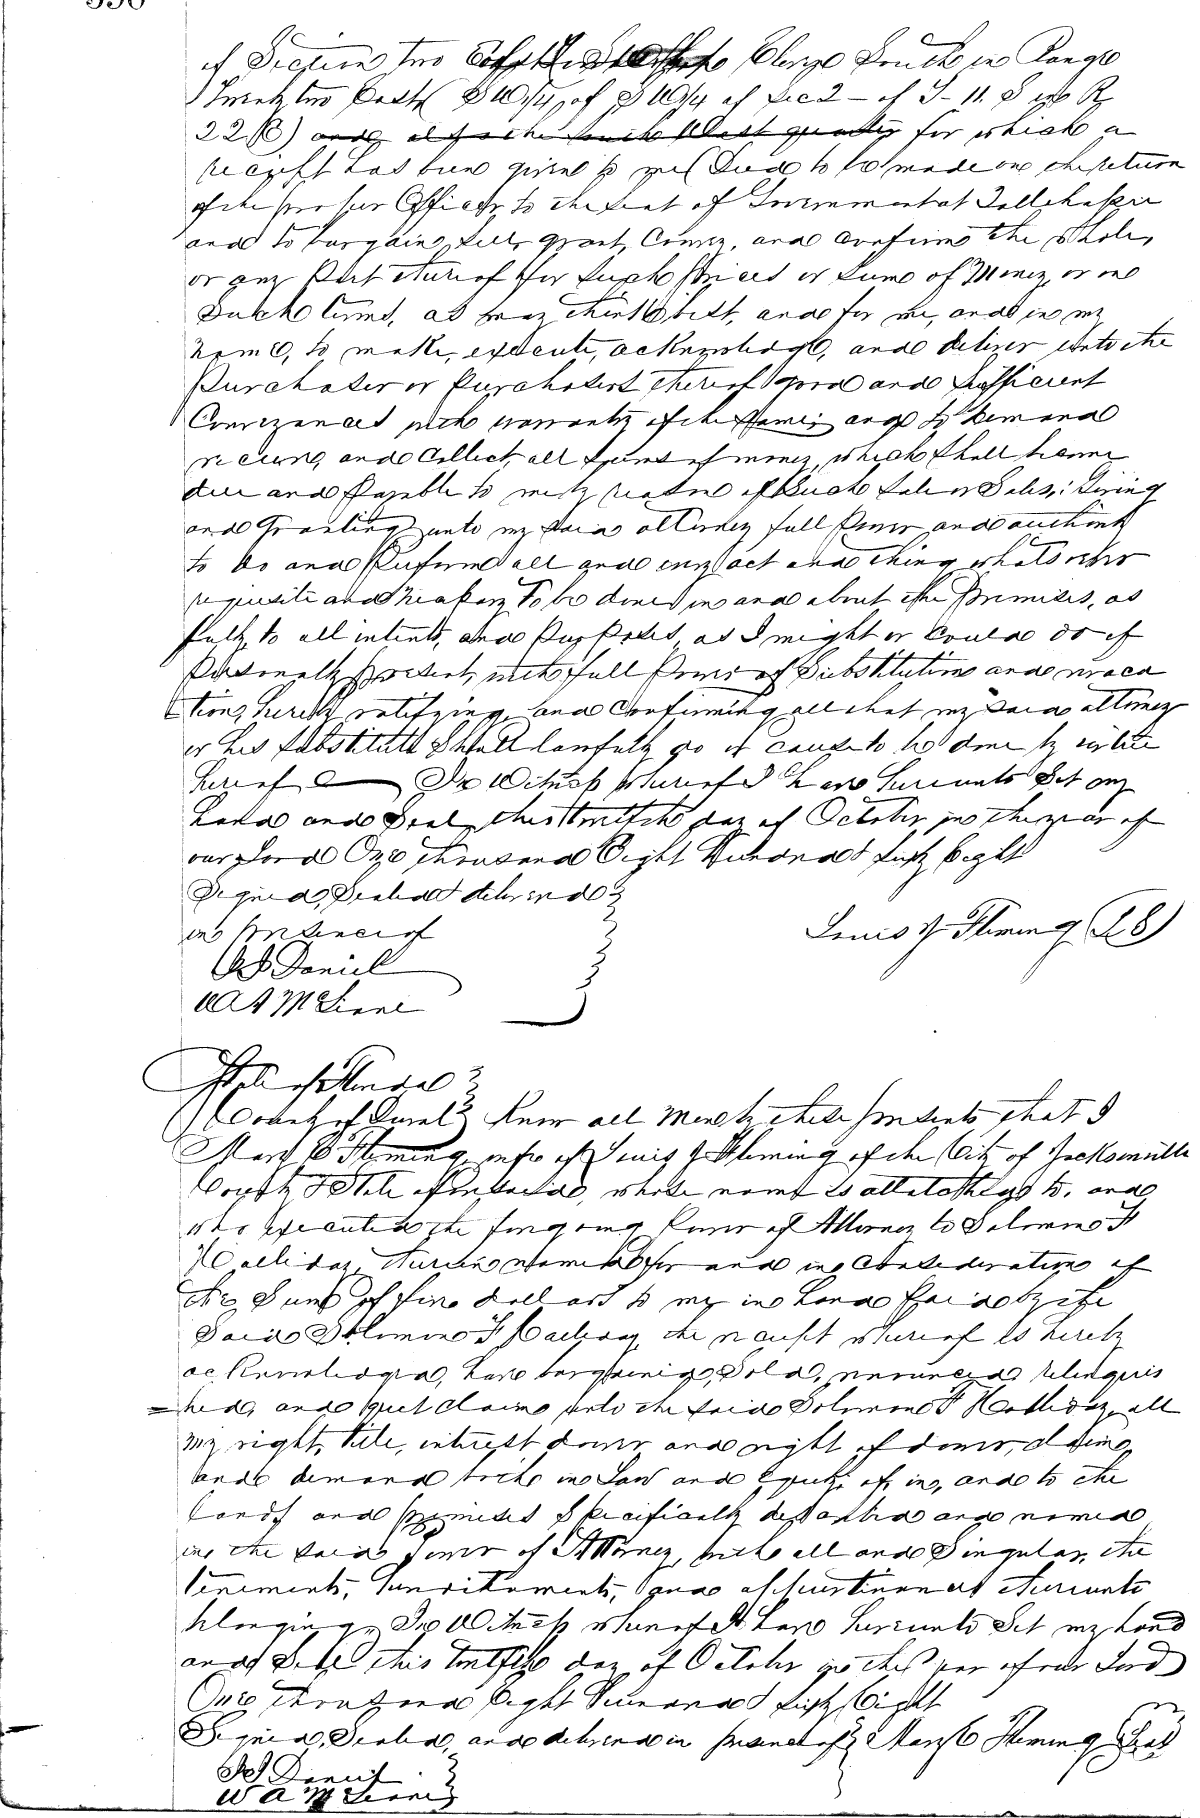 of Section two Eleven South in Range
Twenty two East (S W 1/4 of S W 1/4 of Sec 2 - of T- 11. S in R
22 E) and also the South West quarter for which a
receipt has been given to me (Deed to be made on the return
of the proper Officer to the Seat of Government at Tallahassee
and to bargain, sell, grant, Convey, and confirm the whole,
or any Part thereof for Such Prices or Sums of Money, or on
Such terms, as may think best, and for me, and in my
name, to make, execute, acknowledge, and deliver unto the
Purchaser or Purchasers thereof good and Sufficient
Conveyances with warranty of the Same; and to Demand
receive, and Collect, all Sums of money, which Shall become
due and Payable to me by reason of Such Sale or Sales; Giving
and Granting unto my Said attorney full Power and authority
to Do and Perform all and every act and thing whatsoever
requisite and Necessary To be done, in and about the Premises, as
fully to all intents, and Purposes, as I might or Could do if
Personally present, with full Power of Substitution and revoca
tion, hereby ratifying, and Confirming all that my Said attorney
or his Substitute Shall lawfully do or cause to be done by virtue
hereof In Witness whereof I have hereunto Set my
hand and Seal, this twelfth day of October in the year of
our Lord One thousand Eight Hundred & fifty Eight
Signed, Sealed & delivered
in presence of Louis I Fleming (L S)
Daniel
W A McLean
State of Florida
County of Duval Know all Men by these presents that I
Mary E Fleming, wife of Louis I Fleming of the City of Jacksonville
County & State aforesaid, whose name is attached to, and
who executed the foregoing Power of Attorney to Solomon F
Halliday, therein named for and in Consideration of
the Sum of five dollars to me in hand Paid by the
Said Solomon F Halliday, the receipt whereof is hereby
acknowledged, have bargained, Sold, renounced relinquis
=hed, and quit Claim unto the Said Solomon F Halliday, all
my right, title, interest dower and right of dower, claim,
and demand both in Law and Equity of, in, and to the
lands and premises Specifically described and named
in the Said Power of Attorney, with all and Singular, the
tenements, hereditaments, and appurtenances thereunto
belonging. In Witness whereof I have hereunto Set my hand
and Seal this twelfth day of October in the year of our Lord
One thousand Eight Hundred & fifty Eight
Signed, Sealed, and delivered in presence of Mary E Fleming (Seal)
Daniel
W A McLean